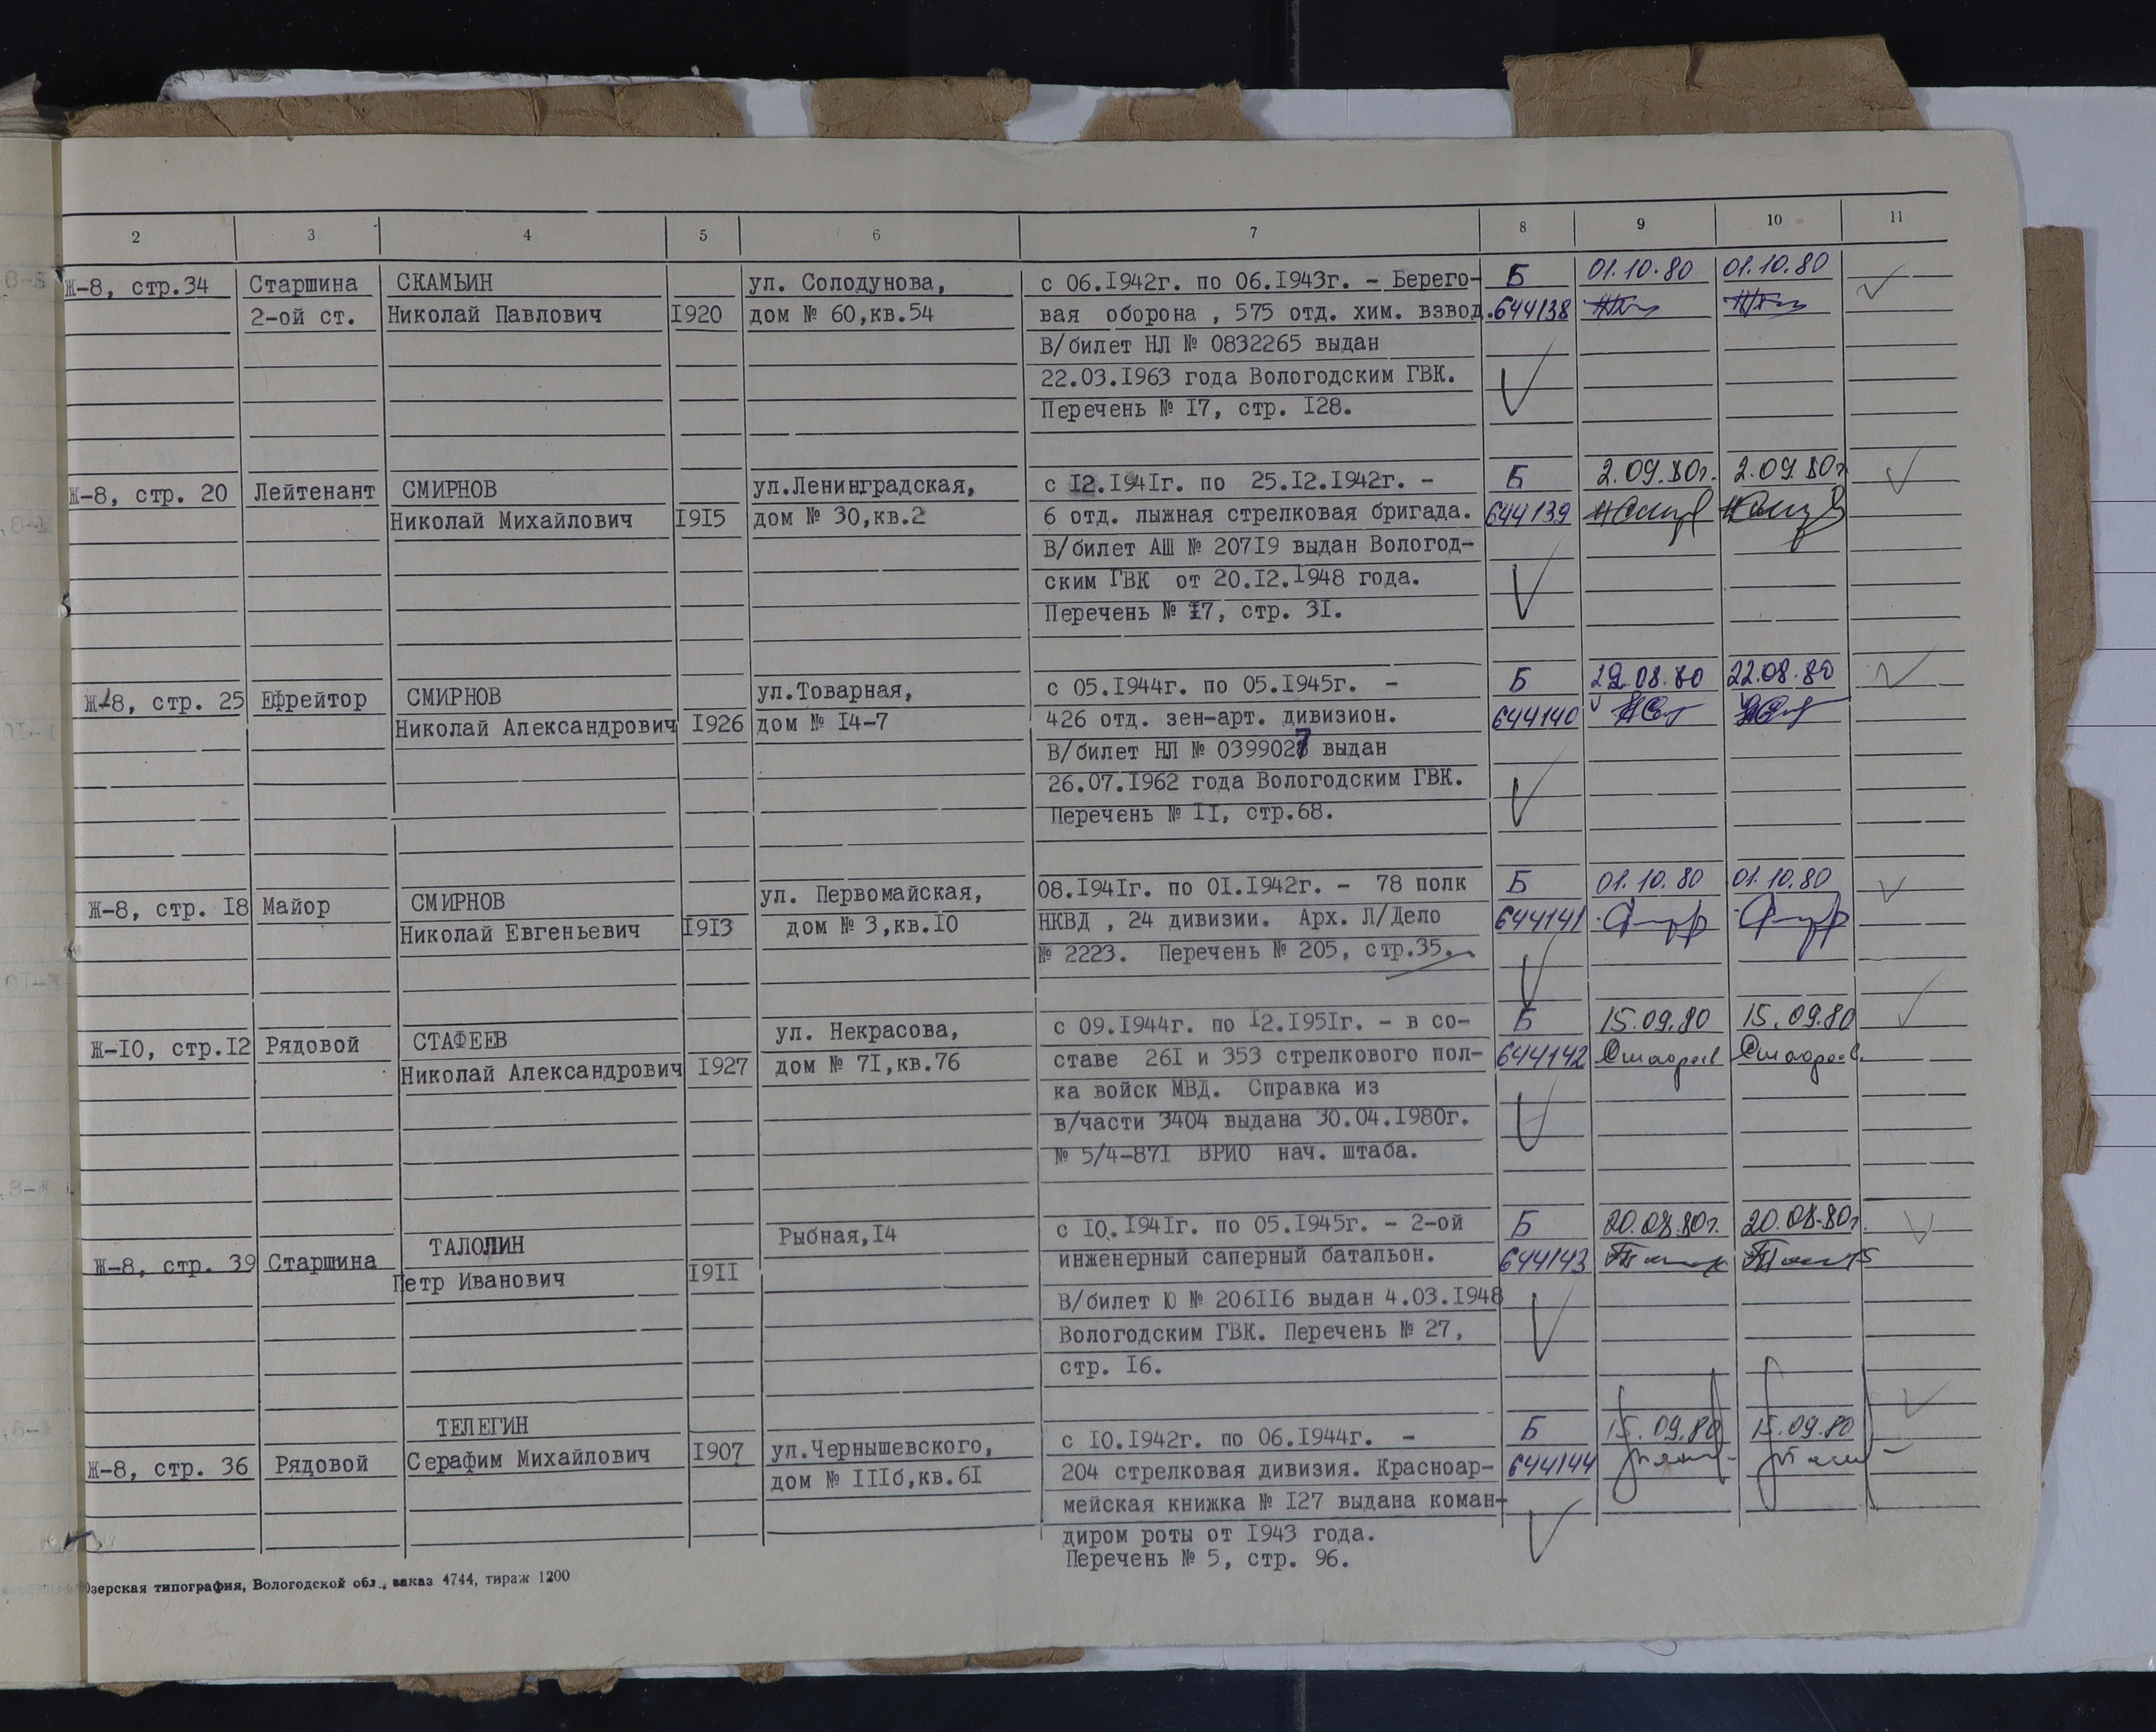 2 3 4 5 6 7 8 9 10 11
Ж-8, стр.34 Старшина СКАМЬИН ул. Солодунова, с 06.I942г. по 06.I943г. - Берего- Б 01.10.80 01.10.80
2-ой ст. Николай Павлович I920 дом № 60,кв.54 вая оборона , 575 отд. хим. взвод. 644138
В/билет НЛ № 0832265 выдан
22.03.I963 года Вологодским ГВК.
Перечень № I7, стр. I28.
Ж-8, стр. 20 Лейтенант СМИРНОВ ул.Ленинградская, с I2.I94Iг. по 25.I2.I942г. - Б 2.09.80г. 2.09.80г
Николай Михайлович I9I5 дом № 30,кв.2 6 отд. лыжная стрелковая бригада. 644139
В/билет АШ № 207I9 выдан Вологод-
ским ГВК от 20.I2.I948 года.
Перечень № I7, стр. 3I.
Ж-8, стр. 25 Ефрейтор СМИРНОВ ул.Товарная, с 05.I944г. по 05.I945г. - Б 22.08.80 22.08.80
Николай Александрович I926 дом № I4-7 426 отд. зен-арт. дивизион. 644140
В/билет НЛ № 0399027 выдан
26.07.I962 года Вологодским ГВК.
Перечень № II, стр.68.
Ж-8, стр. I8 Майор СМИРНОВ ул. Первомайская, 08.I94Iг. по 0I.I942г. - 78 полк Б 01.10.80 01.10.80
Николай Евгеньевич I9I3 дом № 3,кв.I0 НКВД , 24 дивизии. Арх. Л/Дело 644141
№ 2223. Перечень № 205, стр.35.
Ж-I0, стр.I2 Рядовой СТАФЕЕВ ул. Некрасова, с 09.I944г. по I2.I95Iг. - в со- Б 15.09.80 15.09.80
Николай Александрович I927 дом № 7I,кв.76 ставе 26I и 353 стрелкового пол- 644142 Стафеев Стафеев
ка войск МВД. Справка из
в/части 3404 выдана 30.04.I980г.
№ 5/4-87I ВРИО нач. штаба.
Ж-8, стр. 39 Старшина ТАЛОЛИН Рыбная,I4 с I0.I94Iг. по 05.I945г. - 2-ой Б 20.08.80г. 20.08.80г.
Петр Иванович I9II инженерный саперный батальон. 644143
В/билет Ю № 206II6 выдан 4.03.I948
Вологодским ГВК. Перечень № 27,
стр. I6.
Ж-8, стр. 36 Рядовой ТЕЛЕГИН ул.Чернышевского, с I0.I942г. по 06.I944г. - Б 15.09.80 15.09.80
Серафим Михайлович I907 дом № IIIб,кв.6I 204 стрелковая дивизия. Красноар- 644144
мейская книжка № I27 выдана коман-
диром роты от I943 года.
Перечень № 5, стр. 96.
Озерская типография, Вологодской обл., заказ 4744, тираж 1200